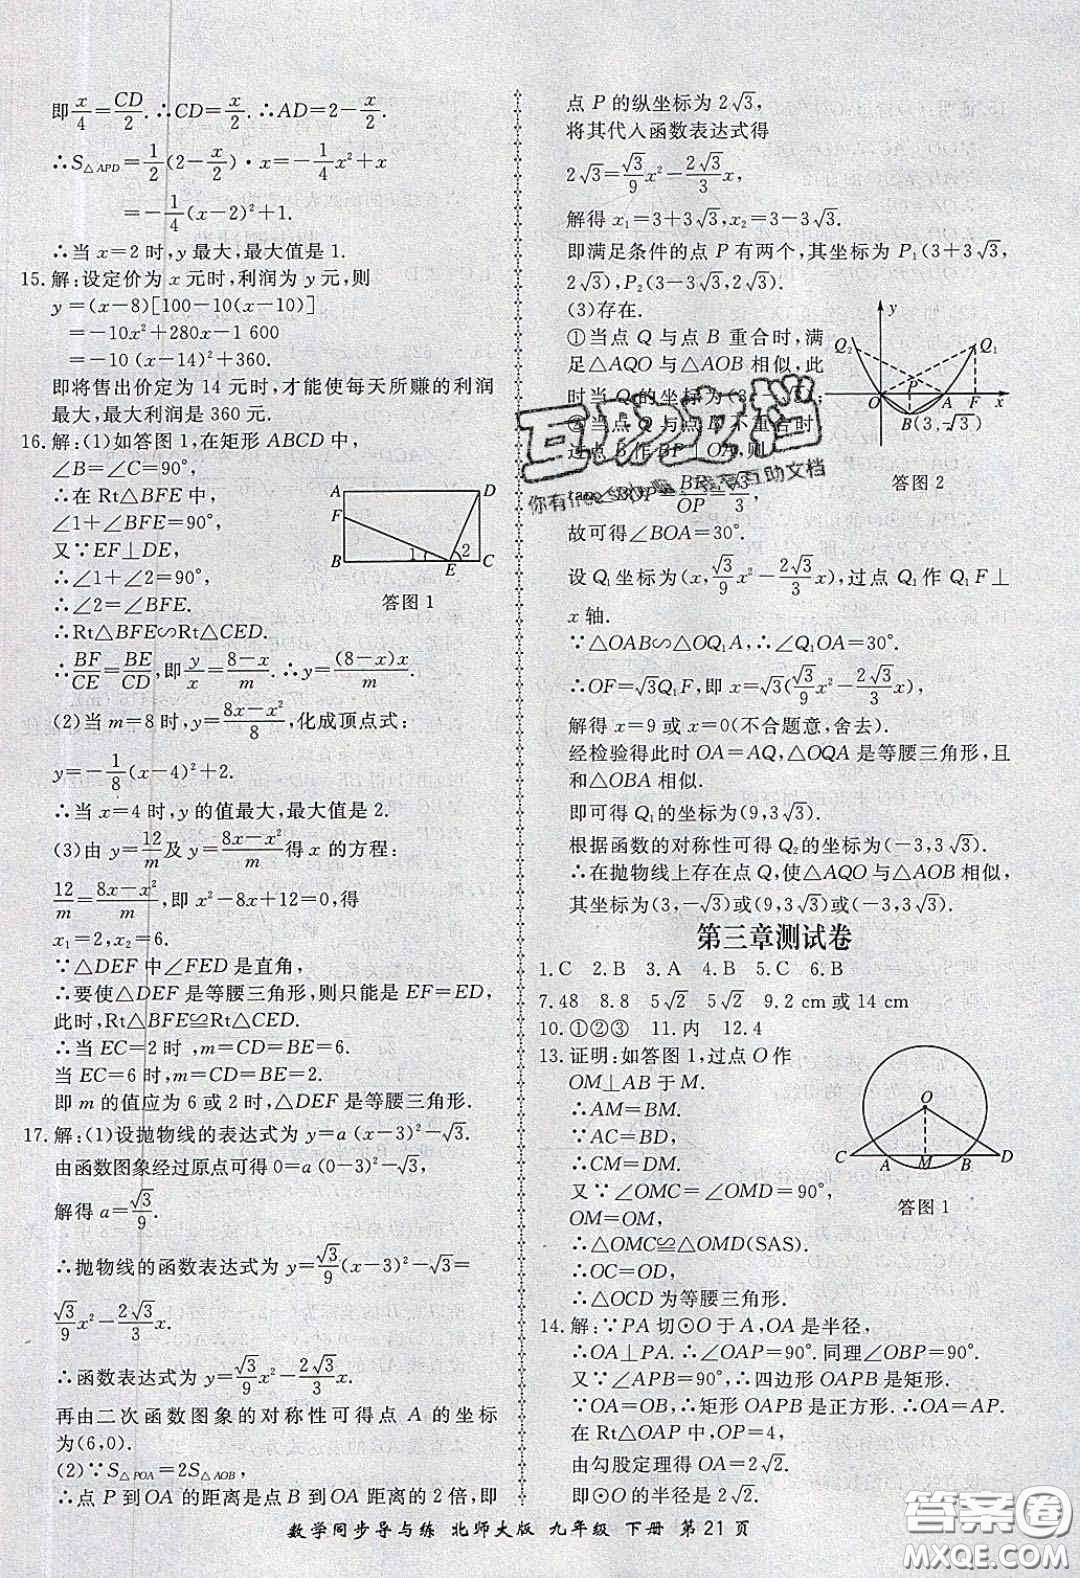 即x/4=CD/2.∴CD=x/2.∴AD=2-x/2.
∴S△APD=1/2(2-x/2)·x=-1/4x²+x
=-1/4(x-2)²+1.
∴当 x=2 时,y 最大,最大值是 1.
15.解:设定价为 x 元时,利润为 y 元,则
y=(x-8)[100-10(x-10)]
=-10x²+280x-1 600
=-10 (x-14)²+360.
即将售出价定为 14 元时,才能使每天所赚的利润
最大,最大利润是 360 元.
16.解:(1)如答图 1,在矩形 ABCD 中,
∠B=∠C=90°,
∴在 Rt△BFE 中,
∠1+∠BFE=90°,
又∵EF⊥DE,
∴∠1+∠2=90°,
∴∠2=∠BFE.
∴Rt△BFE∽Rt△CED.
A D F B E C 1 2
答图 1
∴BF/CE=BE/CD,即y/x=(8-x)/m.∴y=(8-x)x/m.
(2)当 m=8 时,y=(8x-x²)/8,化成顶点式:
y=-1/8(x-4)²+2.
∴当 x=4 时,y 的值最大,最大值是 2.
(3)由 y=12/m及 y=(8x-x²)/m得 x 的方程:
12/m=(8x-x²)/m,即 x²-8x+12=0,得
x₁=2,x₂=6.
∵△DEF 中∠FED 是直角,
∴要使△DEF 是等腰三角形,则只能是 EF=ED,
此时,Rt△BFE≌Rt△CED.
∴当 EC=2 时,m=CD=BE=6.
当 EC=6 时,m=CD=BE=2.
即 m 的值应为 6 或 2 时,△DEF 是等腰三角形.
17.解:(1)设抛物线的表达式为 y=a (x-3)²-√3.
由函数图象经过原点可得 0=a (0-3)²-√3,
解得 a=√3/9.
∴抛物线的函数表达式为 y=√3/9(x-3)²-√3=
√3/9x²-2√3/3x.
∴函数表达式为 y=√3/9x²-2√3/3x.
再由二次函数图象的对称性可得点 A 的坐标
为(6,0).
(2)∵S△POA=2S△AOB,
∴点 P 到OA 的距离是点 B 到OA 的 2 倍,即
点 P 的纵坐标为 2√3,
将其代入函数表达式得
2√3=√3/9x²-2√3/3x,
解得 x₁=3+3√3,x₂=3-3√3.
即满足条件的点 P 有两个,其坐标为 P₁(3+3√3,
2√3),P₂(3-3√3,2√3).
(3)存在.
①当点 Q 与点 B 重合时,满
足△AQO 与△AOB 相似,此
时当 Q的坐标为(3,-√3);
②当点 Q 与点 B 不重合时,
过点 B 作 BP⊥OA,则
y Q₂ Q₁ P O A F x B(3,-√3)
答图 2
tan∠BOP=BP/OP=√3/3,
故可得∠BOA=30°.
设 Q₁坐标为(x,√3/9x²-2√3/3x),过点 Q₁作 Q₁F⊥
x 轴.
∵△OAB∽△OQ₁A,∴∠Q₁OA=30°.
∴OF=√3Q₁F,即 x=√3(√3/9x²-2√3/3x),
解得 x=9 或 x=0(不合题意,舍去).
经检验得此时 OA=AQ,△OQA 是等腰三角形,且
和△OBA 相似.
即可得 Q₁的坐标为(9,3√3).
根据函数的对称性可得 Q₂的坐标为(-3,3√3).
∴在抛物线上存在点 Q,使△AQO 与△AOB 相似,
其坐标为(3,-√3)或(9,3√3)或(-3,3√3).
第三章测试卷
1.C 2.B 3.A 4.B 5.C 6.B
7.48 8.8 5√2 5√2 9.2 cm 或 14 cm
10.①②③ 11.内 12.4
13.证明:如答图 1,过点 O 作
OM⊥AB 于 M.
∴AM=BM.
∵AC=BD,
∴CM=DM.
又∵∠OMC=∠OMD=90°,
OM=OM,
∴△OMC≌△OMD(SAS).
∴OC=OD,
∴△OCD 为等腰三角形.
O C A M B D
答图 1
14.解:∵PA 切⊙O 于 A,OA 是半径,
∴OA⊥PA.∴∠OAP=90°.同理∠OBP=90°.
又∵∠APB=90°,∴四边形 OAPB 是矩形.
∵OA=OB,∴矩形 OAPB 是正方形.∴OA=AP.
在 Rt△OAP 中,OP=4,
由勾股定理得 OA=2√2.
即⊙O 的半径是 2√2.
数学同步导与练 北师大版 九年级 下册 第21页
互助文档
答案圈
MXQE.COM